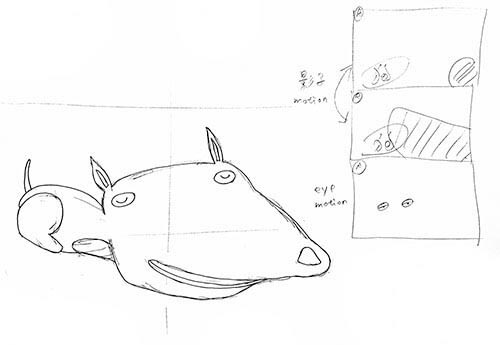 影子
motion
eye
motion